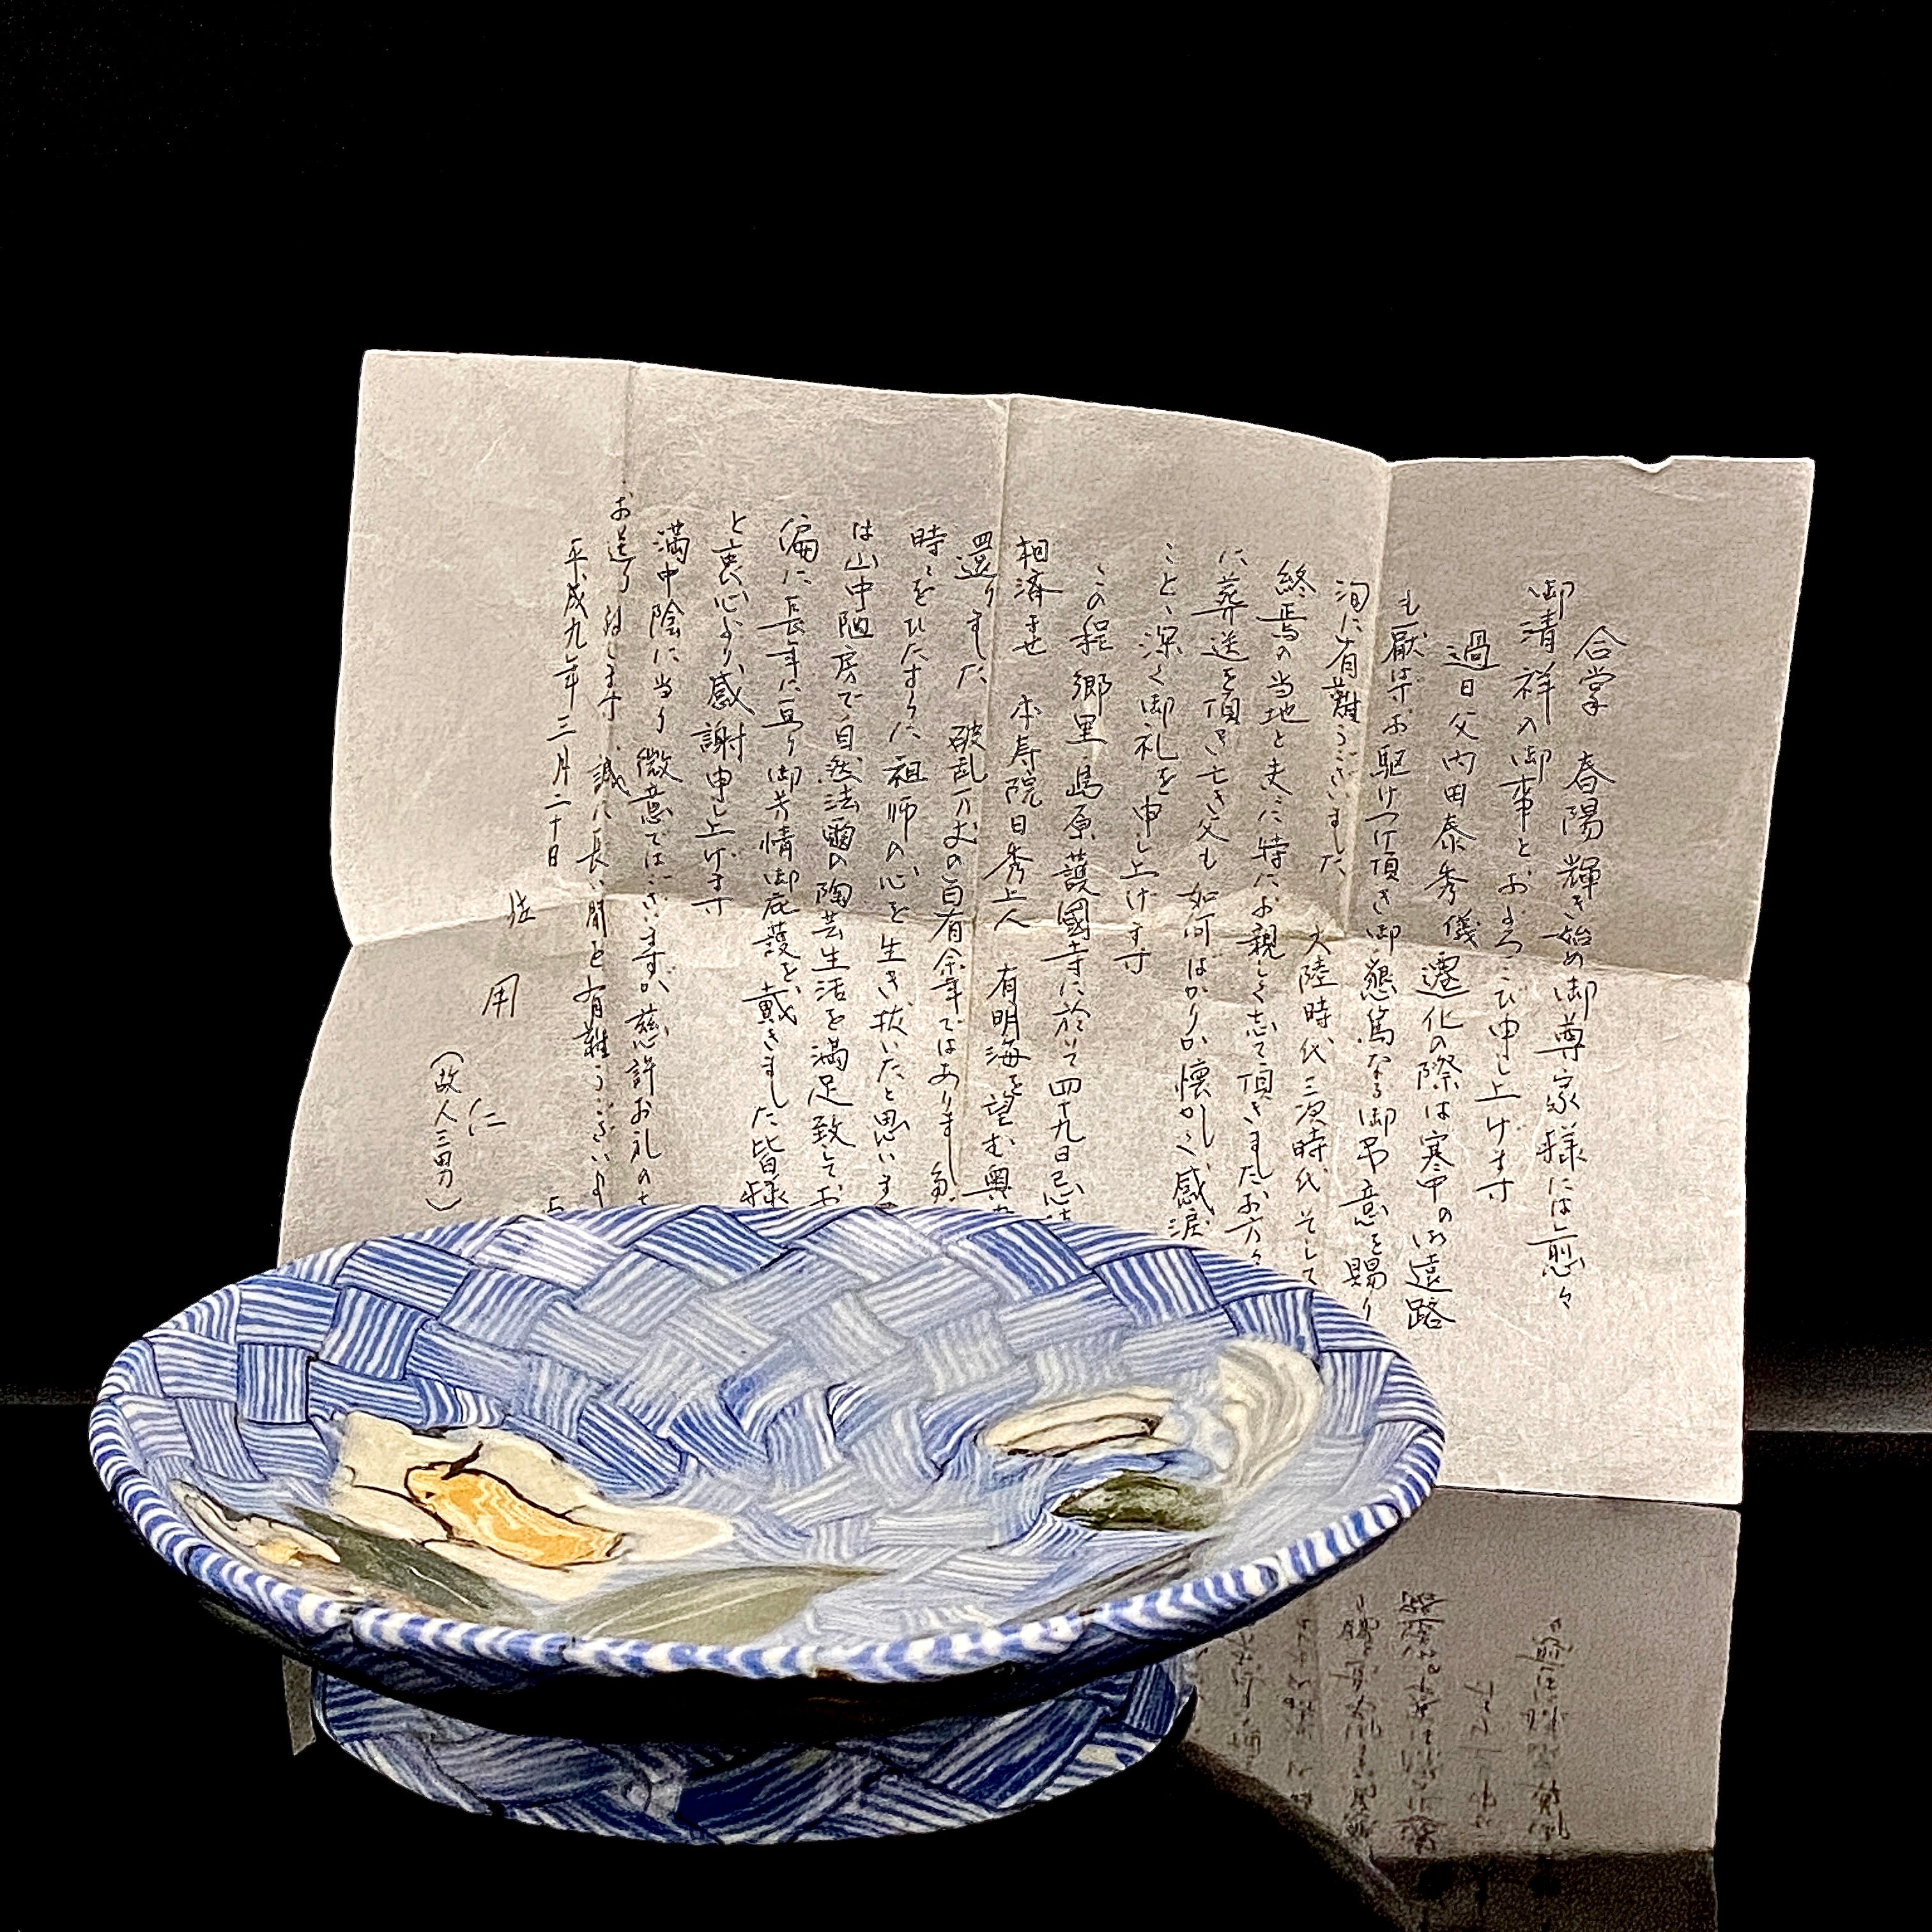 合掌 春陽輝き始め御尊家様には愈々
御清祥の御事とおよろこび申し上げます
過日父内田泰秀儀 遷化の際は寒中の御遠路
も厭はずお駆けつけ頂き御懇篤なる御弔意を賜り
洵に有難うございました 大陸時代三次時代そして
終焉の当地と夫々に特にお親しく志て頂きましたお方々
に葬送を頂き亡き父も如何ばかりか懐かしく感涙
こと、深く御礼を申し上げます
この程郷里島原護國寺に於いて四十九日忌
相済ませ 本寿院日秀上人 有明海を望む奥
還りました 破乱万丈の百有余年ではありまし
時々をひたすらに祖師の心を生き抜いたと思いま
は山中陋房で自然法爾の陶芸生活を満足致してお
偏に長年に亘り御芳情御庇護を戴きました皆様
と衷心より感謝申し上げます
満中陰に当り微意ではございますが慈許お礼の
お送り致します 誠に長い間を有難うございま
平成九年三月二十日
用 仁
(故人三男)